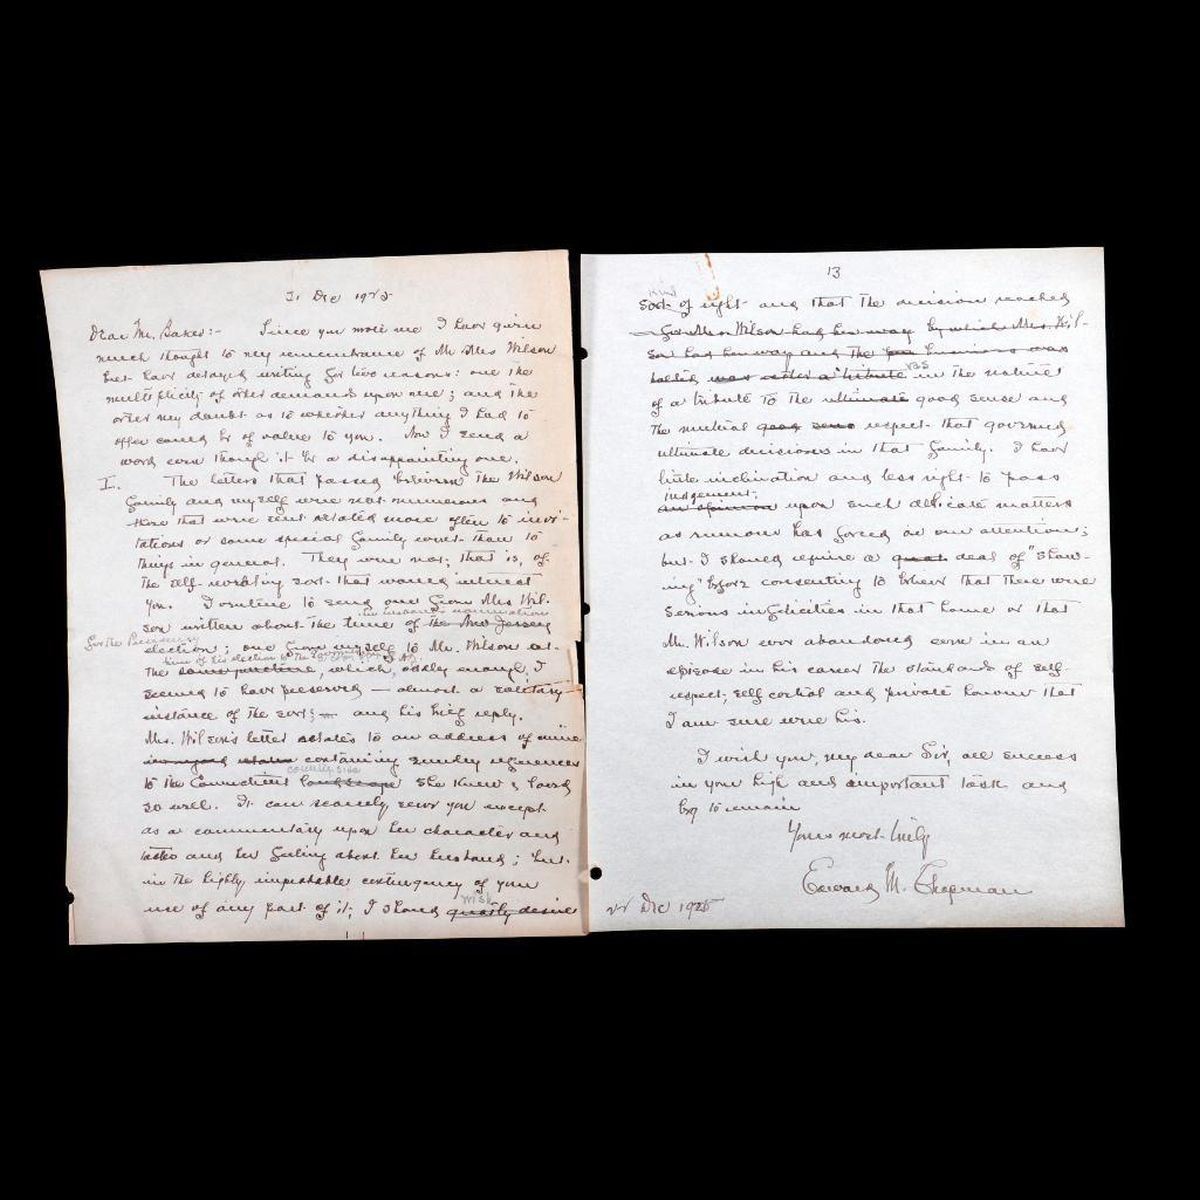 31 Dec 1925
Dear Mr. Baker:- Since you wrote me I have given
much thought to my remembrance of Mr Mrs Wilson
but have delayed writing for two reasons: one the
multiplicity of other demands upon me; and the
other my doubt as to whether anything I had to
offer could be of value to you. Now I send a
word even though it be a disappointing one.
I. The letters that passed between the Wilson
family and myself were not numerous and
those that were sent related more often to invi-
tations or some special family event than to
things in general. They were not, that is, of
the self-revealing sort that would interest
you. I venture to send one from Mrs Wil-
nomination
son written about the time of the New Jersey
for the Presidency
election; one from myself to Mr. Wilson at
time of his election to the Governorship of N.J.
the same juncture, which, oddly enough, I
seemed to have preserved — almost a solitary
instance of the sort; and his brief reply.
Mrs. Wilson's letter relates to an address of mine
containing sundry references
countryside
to the Connecticut landscape she knew & loved
so well. It can scarcely serve you except
as a commentary upon her character and
tastes and her feeling about her husband; but
in the highly improbable contingency of your
wish
use of any part of it, I should greatly desire
13
kind
sort of right and that the decision reached
So Mrs Wilson had her way by which Mrs. Wil-
son had her way and the business was
was
settled was rather a tribute in the nature
of a tribute to the ultimate good sense and
the mutual good sense respect that governed
ultimate decisions in that family. I have
little inclination and less right to pass
judgement
an opinion upon such delicate matters
as rumour has forced on our attention;
but I should require a great deal of "show-
ing" before consenting to believe that there were
serious infelicities in that home or that
Mr. Wilson ever abandoned even in an
episode in his career the standards of self-
respect, self control and private honour that
I am sure were his.
I wish you, my dear Sir, all success
in your high and important task and
beg to remain
Yours most truly
Edward M. Chapman
Dec 1925